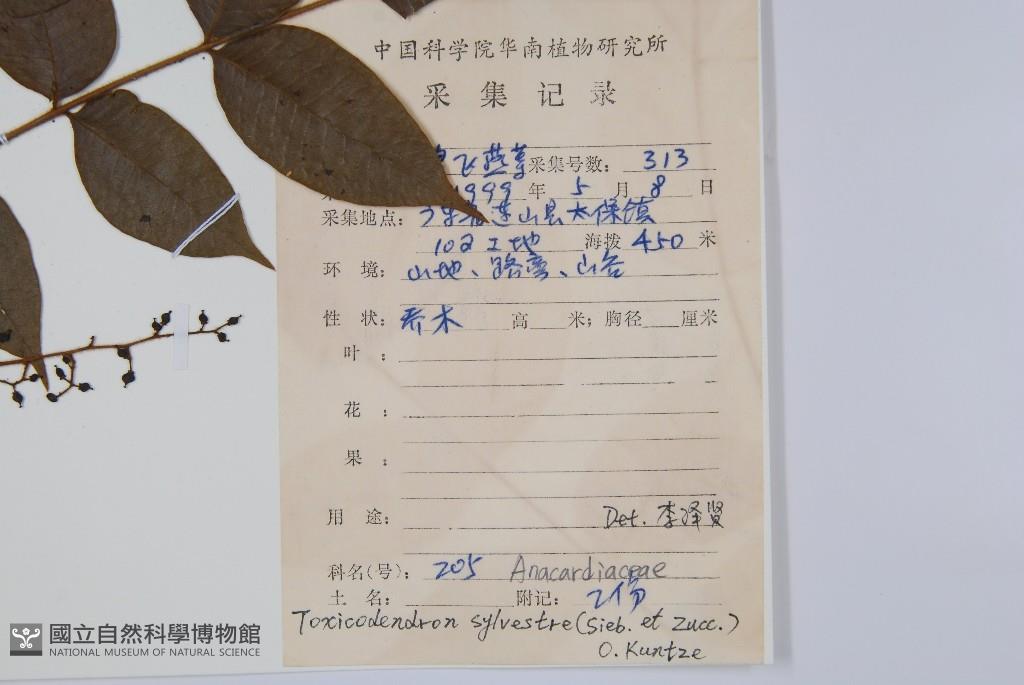 中国科学院华南植物研究所
采集记录
飞燕等 采集号数: 313
1999 年 5 月 8 日
采集地点: 广东省连山县太保镇
102工地 海拨 450 米
环境: 山地、路旁、山谷
性状: 乔木 高 米; 胸径 厘米
叶:
花:
果:
用途: Det. 李泽贤
科名(号): 205 Anacardiaceae
土名: 附记: 2份
Toxicodendron sylvestre (Sieb. et Zucc.)
O. Kuntze
國立自然科學博物館
NATIONAL MUSEUM OF NATURAL SCIENCE